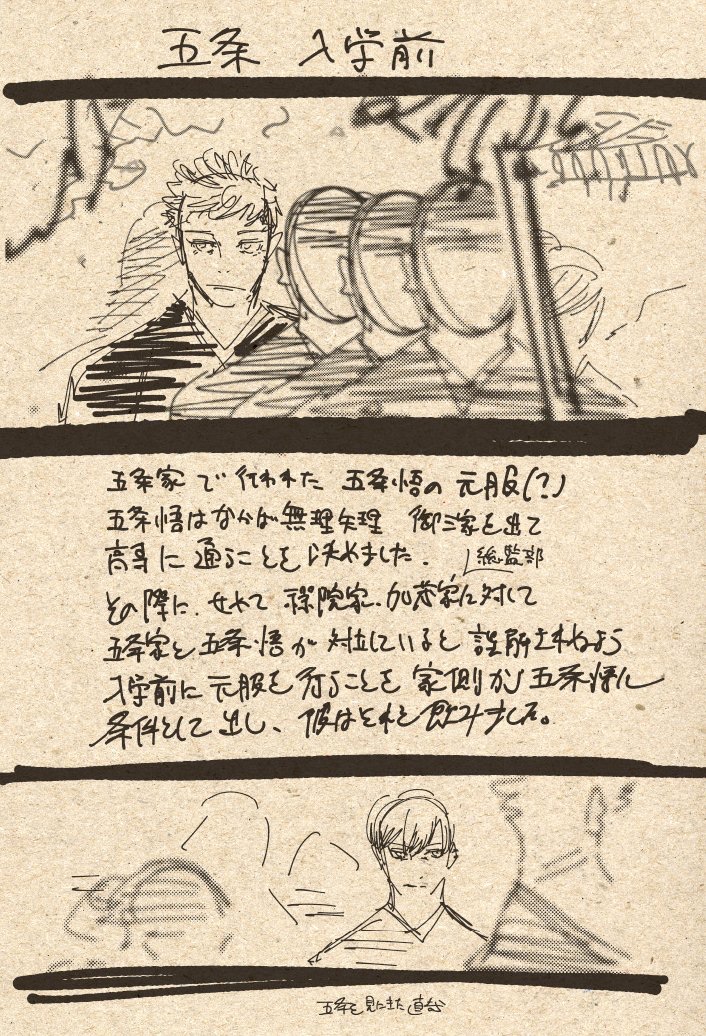 五条 入学前
五条家で行われた 五条悟の元服(?)
五条悟はなかば無理矢理 御三家を出て
高専に通うことを決めました.
総監部
その際に、せめて 禪院家、加茂家に対して
五条家と五条悟が対立していると誤解されぬよう
入学前に元服を行うことを家側から五条悟に
条件として出し、彼はそれを飲みました。
五条を見にきた直哉